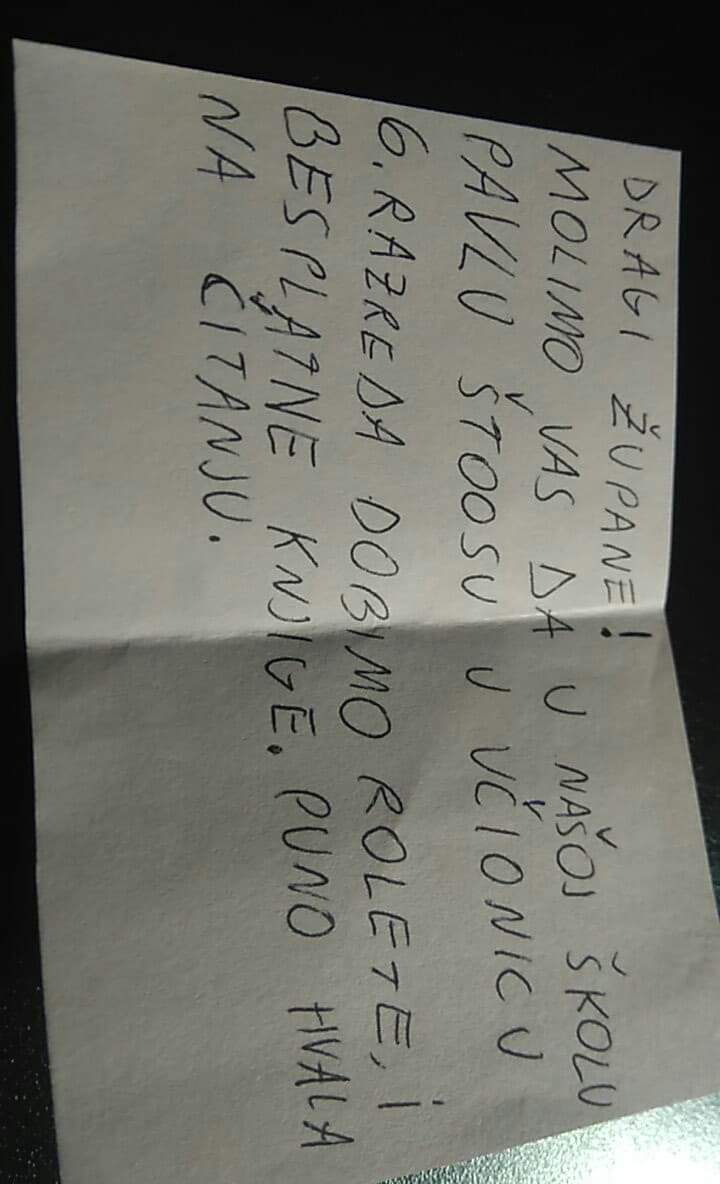 DRAGI ŽUPANE!
MOLIMO VAS DA U NAŠOJ ŠKOLU
PAVLU ŠTOOSU U UČIONICU
6. RAZREDA DOBIMO ROLETE, I
BESPLATNE KNJIGE. PUNO HVALA
NA ČITANJU.